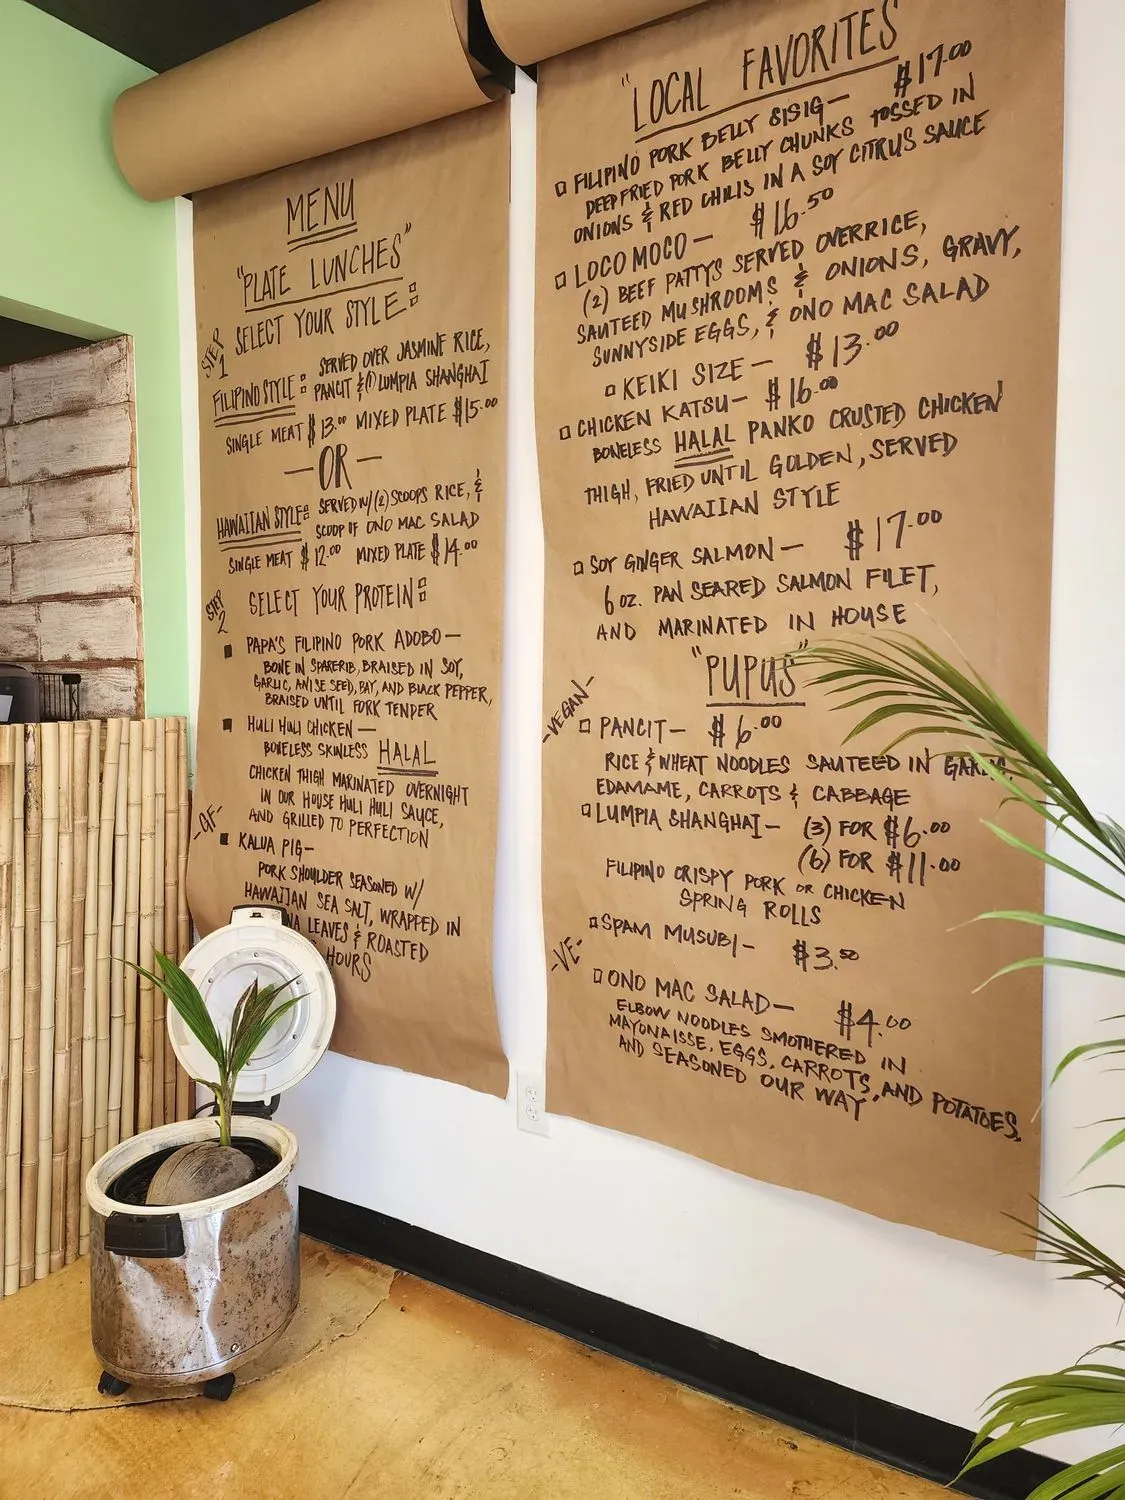 MENU
"PLATE LUNCHES"
STEP 1
SELECT YOUR STYLE:
FILIPINO STYLE: SERVED OVER JASMINE RICE,
PANCIT & (1) LUMPIA SHANGHAI
SINGLE MEAT $13.00 MIXED PLATE $15.00
—OR—
HAWAIIAN STYLE: SERVED W/ (2) SCOOPS RICE, &
SCOOP OF ONO MAC SALAD
SINGLE MEAT $12.00 MIXED PLATE $14.00
STEP 2
SELECT YOUR PROTEIN:
PAPA'S FILIPINO PORK ADOBO—
BONE IN SPARERIB, BRAISED IN SOY,
GARLIC, ANISE SEED, BAY, AND BLACK PEPPER,
BRAISED UNTIL FORK TENDER
HULI HULI CHICKEN—
BONELESS SKINLESS HALAL
CHICKEN THIGH MARINATED OVERNIGHT
IN OUR HOUSE HULI HULI SAUCE,
AND GRILLED TO PERFECTION
-GF-
KALUA PIG—
PORK SHOULDER SEASONED W/
HAWAIIAN SEA SALT, WRAPPED IN
LEAVES & ROASTED
HOURS
"LOCAL FAVORITES"
FILIPINO PORK BELLY SISIG— $17.00
DEEP FRIED PORK BELLY CHUNKS TOSSED IN
ONIONS & RED CHILIS IN A SOY CITRUS SAUCE
LOCO MOCO— $16.50
(2) BEEF PATTYS SERVED OVER RICE,
SAUTEED MUSHROOMS & ONIONS, GRAVY,
SUNNYSIDE EGGS, & ONO MAC SALAD
KEIKI SIZE— $13.00
CHICKEN KATSU— $16.00
BONELESS HALAL PANKO CRUSTED CHICKEN
THIGH, FRIED UNTIL GOLDEN, SERVED
HAWAIIAN STYLE
SOY GINGER SALMON— $17.00
6 OZ. PAN SEARED SALMON FILET,
AND MARINATED IN HOUSE
"PUPUS"
-VEGAN-
PANCIT— $6.00
RICE & WHEAT NOODLES SAUTEED IN GARLIC,
EDAMAME, CARROTS & CABBAGE
LUMPIA SHANGHAI— (3) FOR $6.00
(6) FOR $11.00
FILIPINO CRISPY PORK OR CHICKEN
SPRING ROLLS
SPAM MUSUBI— $3.50
-VE-
ONO MAC SALAD— $4.00
ELBOW NOODLES SMOTHERED IN
MAYONAISSE, EGGS, CARROTS, AND POTATOES,
AND SEASONED OUR WAY